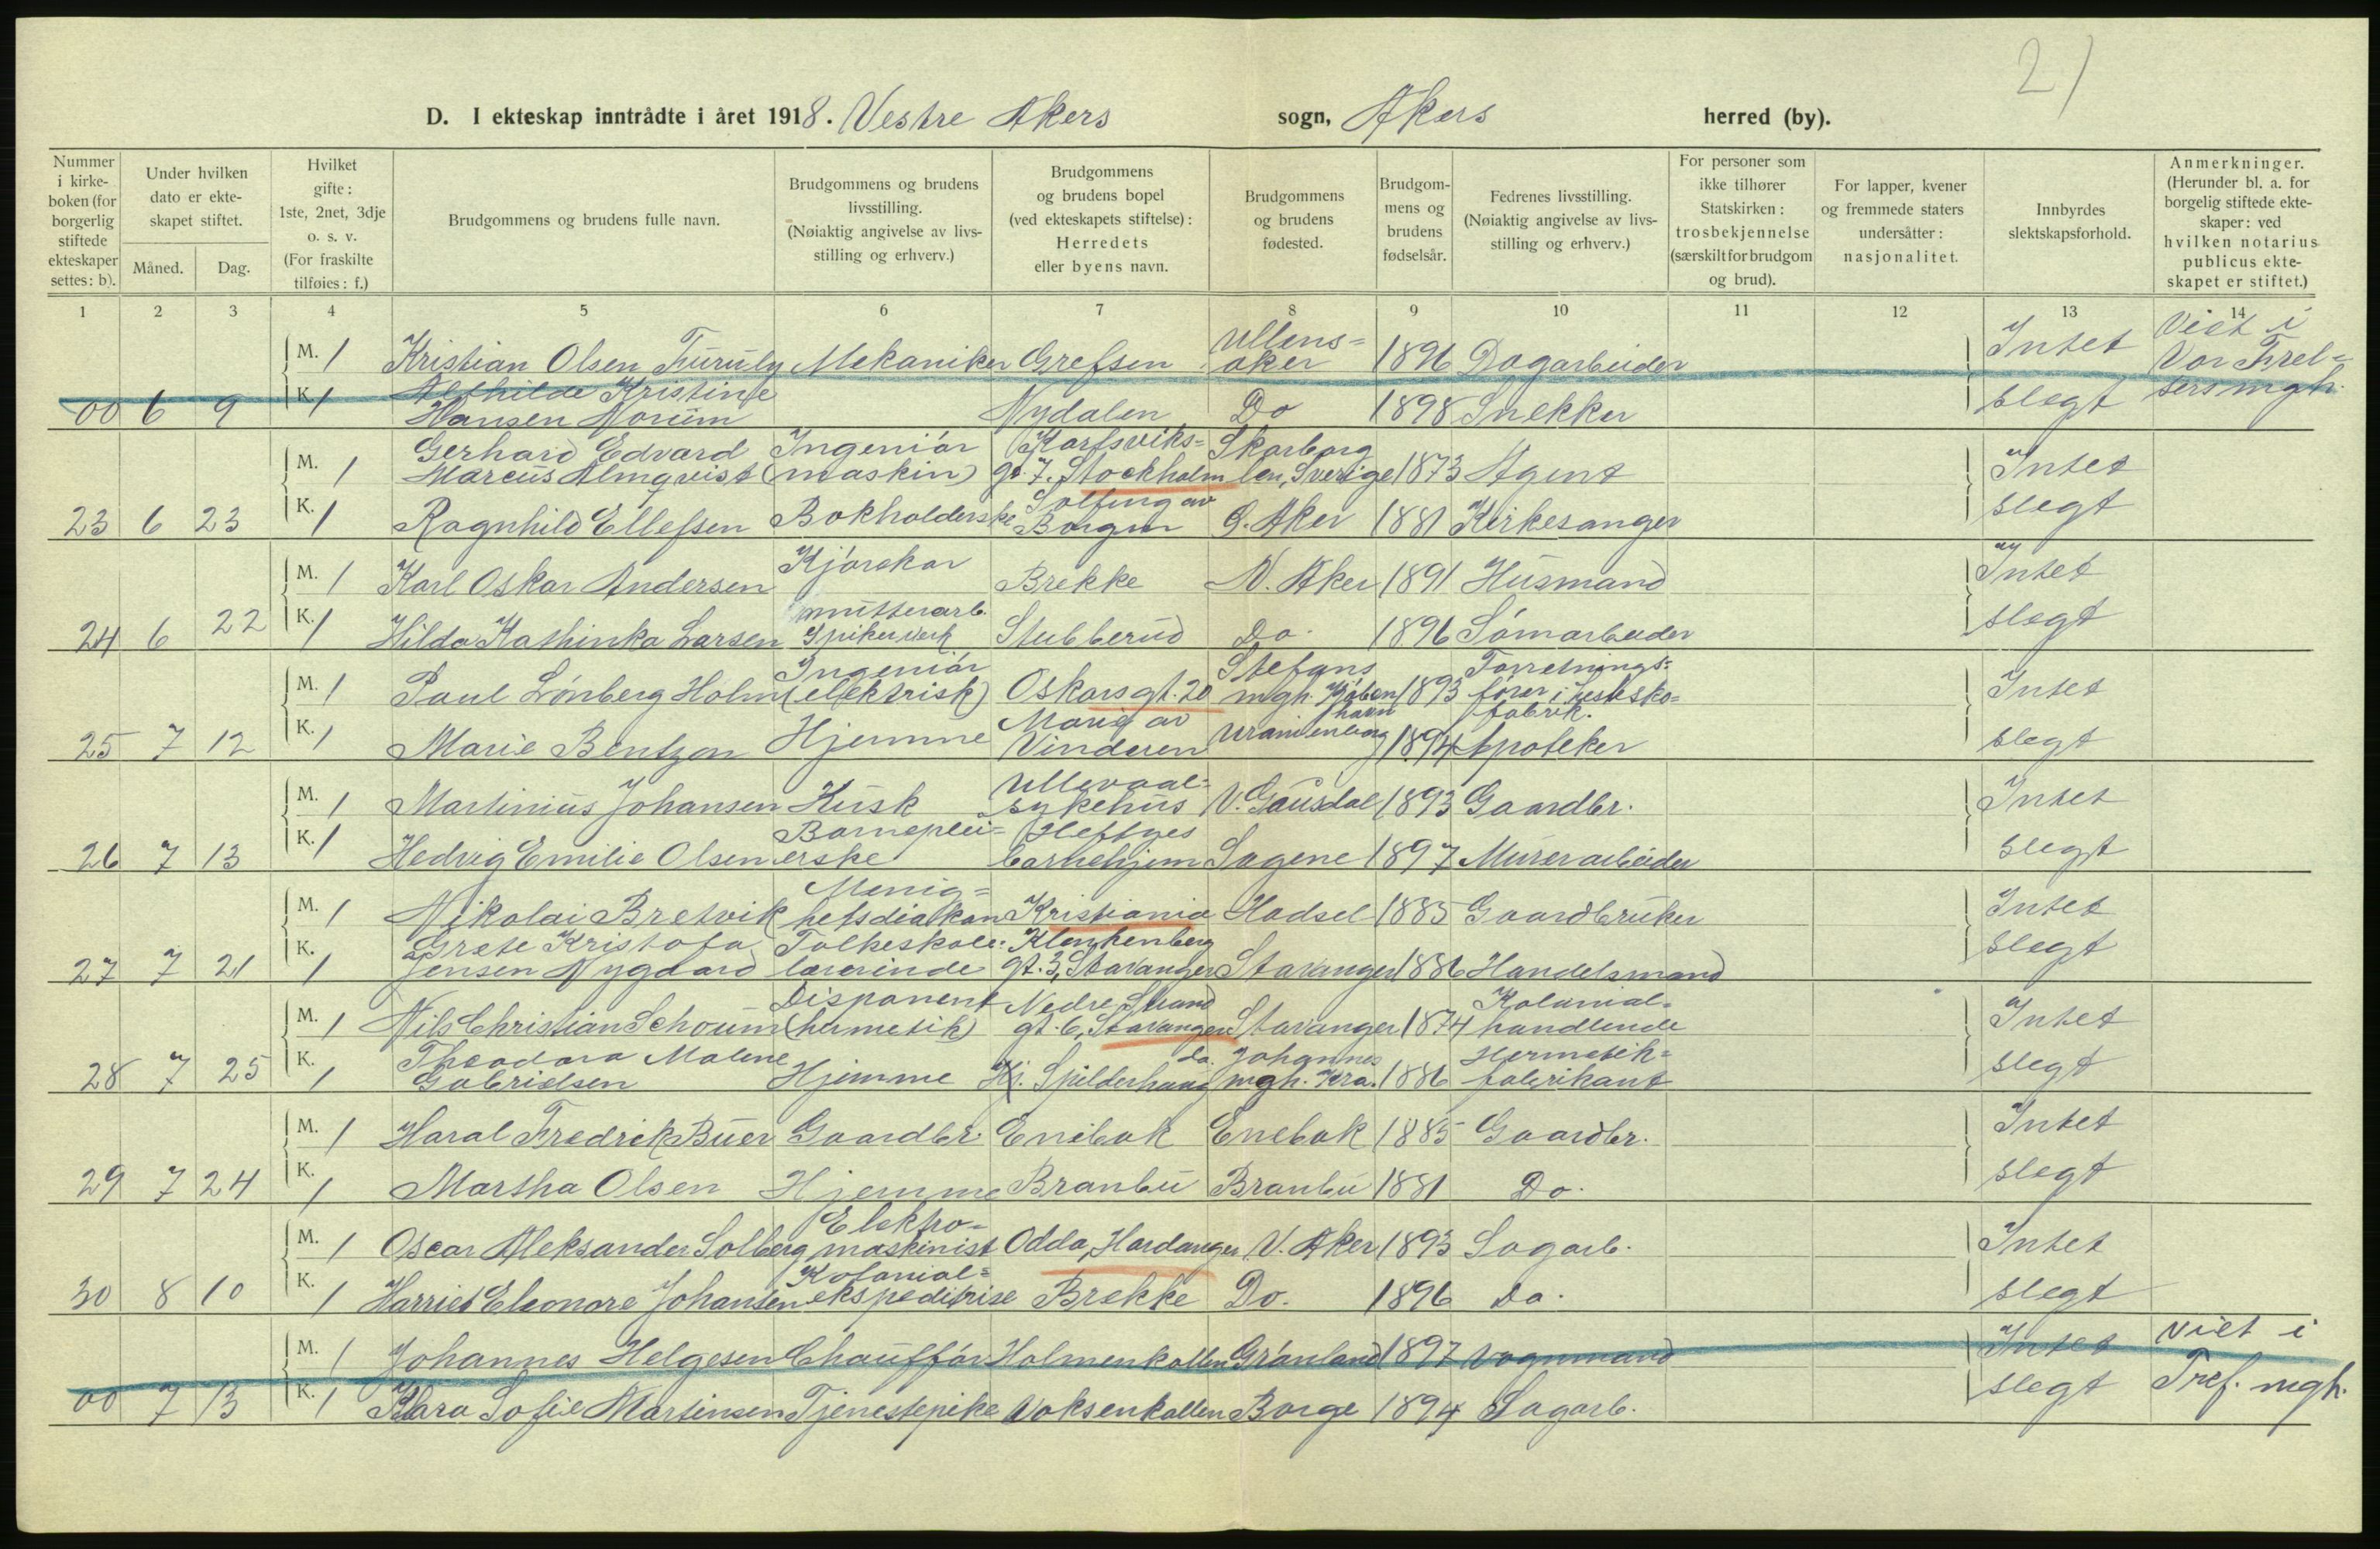 21
D. I ekteskap inntrådte i året 1918. Vestre Akers sogn, Akers herred (by).
Nummer i kirkeboken (for borgerlig stiftede ekteskaper settes: b).
Under hvilken dato er ekteskapet stiftet.
Måned. Dag.
Hvilket gifte: 1ste, 2net, 3dje o. s. v. (For fraskilte tilføies: f.)
Brudgommens og brudens fulle navn.
Brudgommens og brudens livsstilling. (Nøiaktig angivelse av livsstilling og erhverv.)
Brudgommens og brudens bopel (ved ekteskapets stiftelse): Herredets eller byens navn.
Brudgommens og brudens fødested.
Brudgommens og brudens fødselsår.
Fedrenes livsstilling. (Nøiaktig angivelse av livsstilling og erhverv.)
For personer som ikke tilhører Statskirken: trosbekjennelse (særskilt for brudgom og brud).
For lapper, kvener og fremmede staters undersåtter: nasjonalitet.
Innbyrdes slektskapsforhold.
Anmerkninger. (Herunder bl. a. for borgelig stiftede ekteskaper: ved hvilken notarius publicus ekteskapet er stiftet.)
1 2 3 4 5 6 7 8 9 10 11 12 13 14
M. 1 Kristian Olsen Furuly Mekaniker Grefsen Ullensaker 1896 Dagarbeider Intet Viet i Vor Frelsers mgh.
00 6 9 K. 1 Alfhilde Kristine Hansen Norum Nydalen Do 1898 Snekker slegt
M. 1 Gerhard Edvard Marcus Almqvist Ingeniör (maskin) Karfsviksgt. 7. Stockholm Skarborg len, Sverige 1873 Agent Intet
23 6 23 K. 1 Ragnhild Ellefsen Bokholderske Solfeng av Borgen G. Aker 1881 Kirkesanger slegt
M. 1 Karl Oskar Andersen Kjörekar Brekke N. Aker 1891 Husmand Intet
24 6 22 K. 1 Hilda Kathinka Larsen mutterarb. Spikerverk Stubberud Do. 1896 Sömarbeider slegt
M. 1 Paul Lönberg Holm Ingeniör (elektrisk) Oskarsgt. 20 Stefans mgh. Köbenhavn 1893 Forretningsförer i hestskofabrik. Intet
25 7 12 K. 1 Marie Bentzon Hjemme Marig av Vinderen Uranienborg 1894 Apoteker slegt
M. 1 Martinius Johansen Kusk Ullevaal sykehus V. Gausdal 1893 Gaardbr. Intet
26 7 13 K. 1 Hedvig Emilie Olsen Barnepleierske Heftyes barnehjem Sagene 1897 Murerarbeider slegt
M. 1 Nikolai Bretvik Menighetsdiakon Kristiania Hadsel 1885 Gaardbruker Intet
27 7 21 K. 1 Grete Kristofa Jensen Nygaard Folkeskolelærerinde Klenkenberg gt. 3, Stavanger Stavanger 1886 Handelsmand slegt
M. 1 Nils Christian Schoum Disponent (hermetik) Nedre Strand gt. 6, Stavanger Stavanger 1874 Kolonialhandlende Intet
28 7 25 K. 1 Theodora Malene Gabrielsen Hjemme Kj. Spilderhaug do. Johannes mgh. Kra. 1886 Hermetikfabrikant slegt
M. 1 Haral Fredrik Buer Gaardbr. Enebak Enebak 1885 Gaardbr. Intet
29 7 24 K. 1 Martha Olsen Hjemme Branbu Branbu 1881 Do. slegt
M. 1 Oscar Aleksander Solberg Elektromaskinist Odda, Hardanger V. Aker 1893 Sagarb. Intet
30 8 10 K. 1 Harriet Eleonore Johansen Kolonialekspeditrise Brekke Do. 1896 Do. slegt
M. 1 Johannes Helgesen Chaufför Holmenkollen Grönland 1897 Vognmand Intet Viet i Tref. mgh.
00 7 13 K. 1 Klara Sofie Martinsen Tjenestepike Voksenkollen Borge 1894 Sagarb. slegt